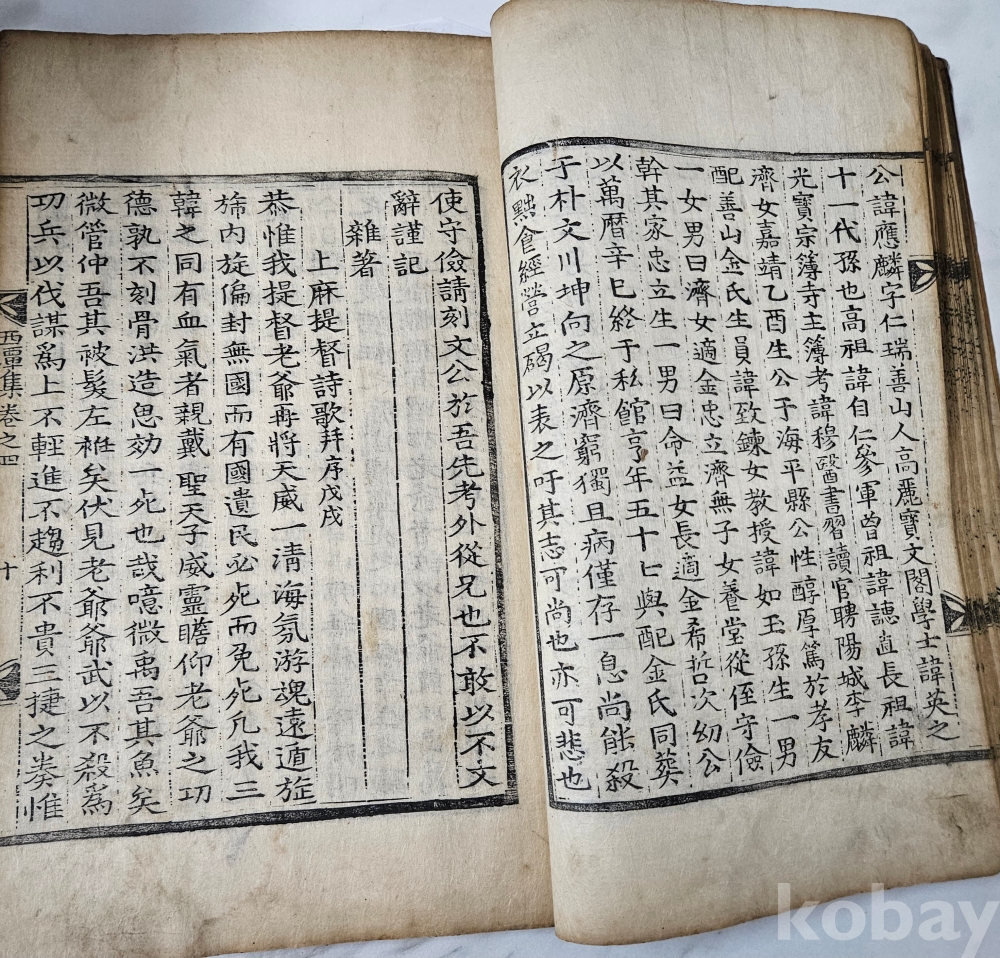 公諱應麟字仁瑞善山人高麗寶文閣學士諱英之
十一代孫也高祖諱自仁參軍曾祖諱譓直長祖諱
光寶宗簿寺主簿考諱穆醫書習讀官聘陽城李麟
濟女嘉靖乙酉生公于海平縣公性醇厚篤於孝友
配善山金氏生員諱致鍊女教授諱如玉孫生一男
一女男曰濟女適金忠立濟無子女養堂從侄守儉
幹其家忠立生一男曰命益女長適金希哲次幼公
以萬曆辛巳終于私館享年五十七與配金氏同葬
于朴文川坤向之原濟窮獨且病僅存一息尚能殺
衣黜食經營立碣以表之吁其志可尚也亦可悲也
使守儉請刻文公於吾先考外從兄也不敢以不文
辭謹記
雜著
上麻提督詩歌拜序戊戌
恭惟我提督老爺再將天威一淸海氛游魂遠遁旋
旆內旋偏封無國而有國遺民必死而免死凡我三
韓之同有血氣者親戴 聖天子威靈瞻仰老爺之功
德孰不刻骨洪造思効一死也哉噫微禹吾其魚矣
微管仲吾其被髮左袵矣伏見老爺爺武以不殺爲
功兵以伐謀爲上不輕進不趨利不貴三捷之奏惟
西潭集卷之四
十
kobay